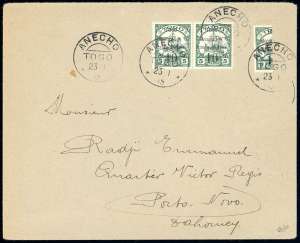 ANECHO
TOGO
23 1
ANECHO
23 1
ANECHO
ANECHO
23 1
Monsieur
Radji Emmanuel
Quartier Victor Régis
Porto-Novo
Dahomey